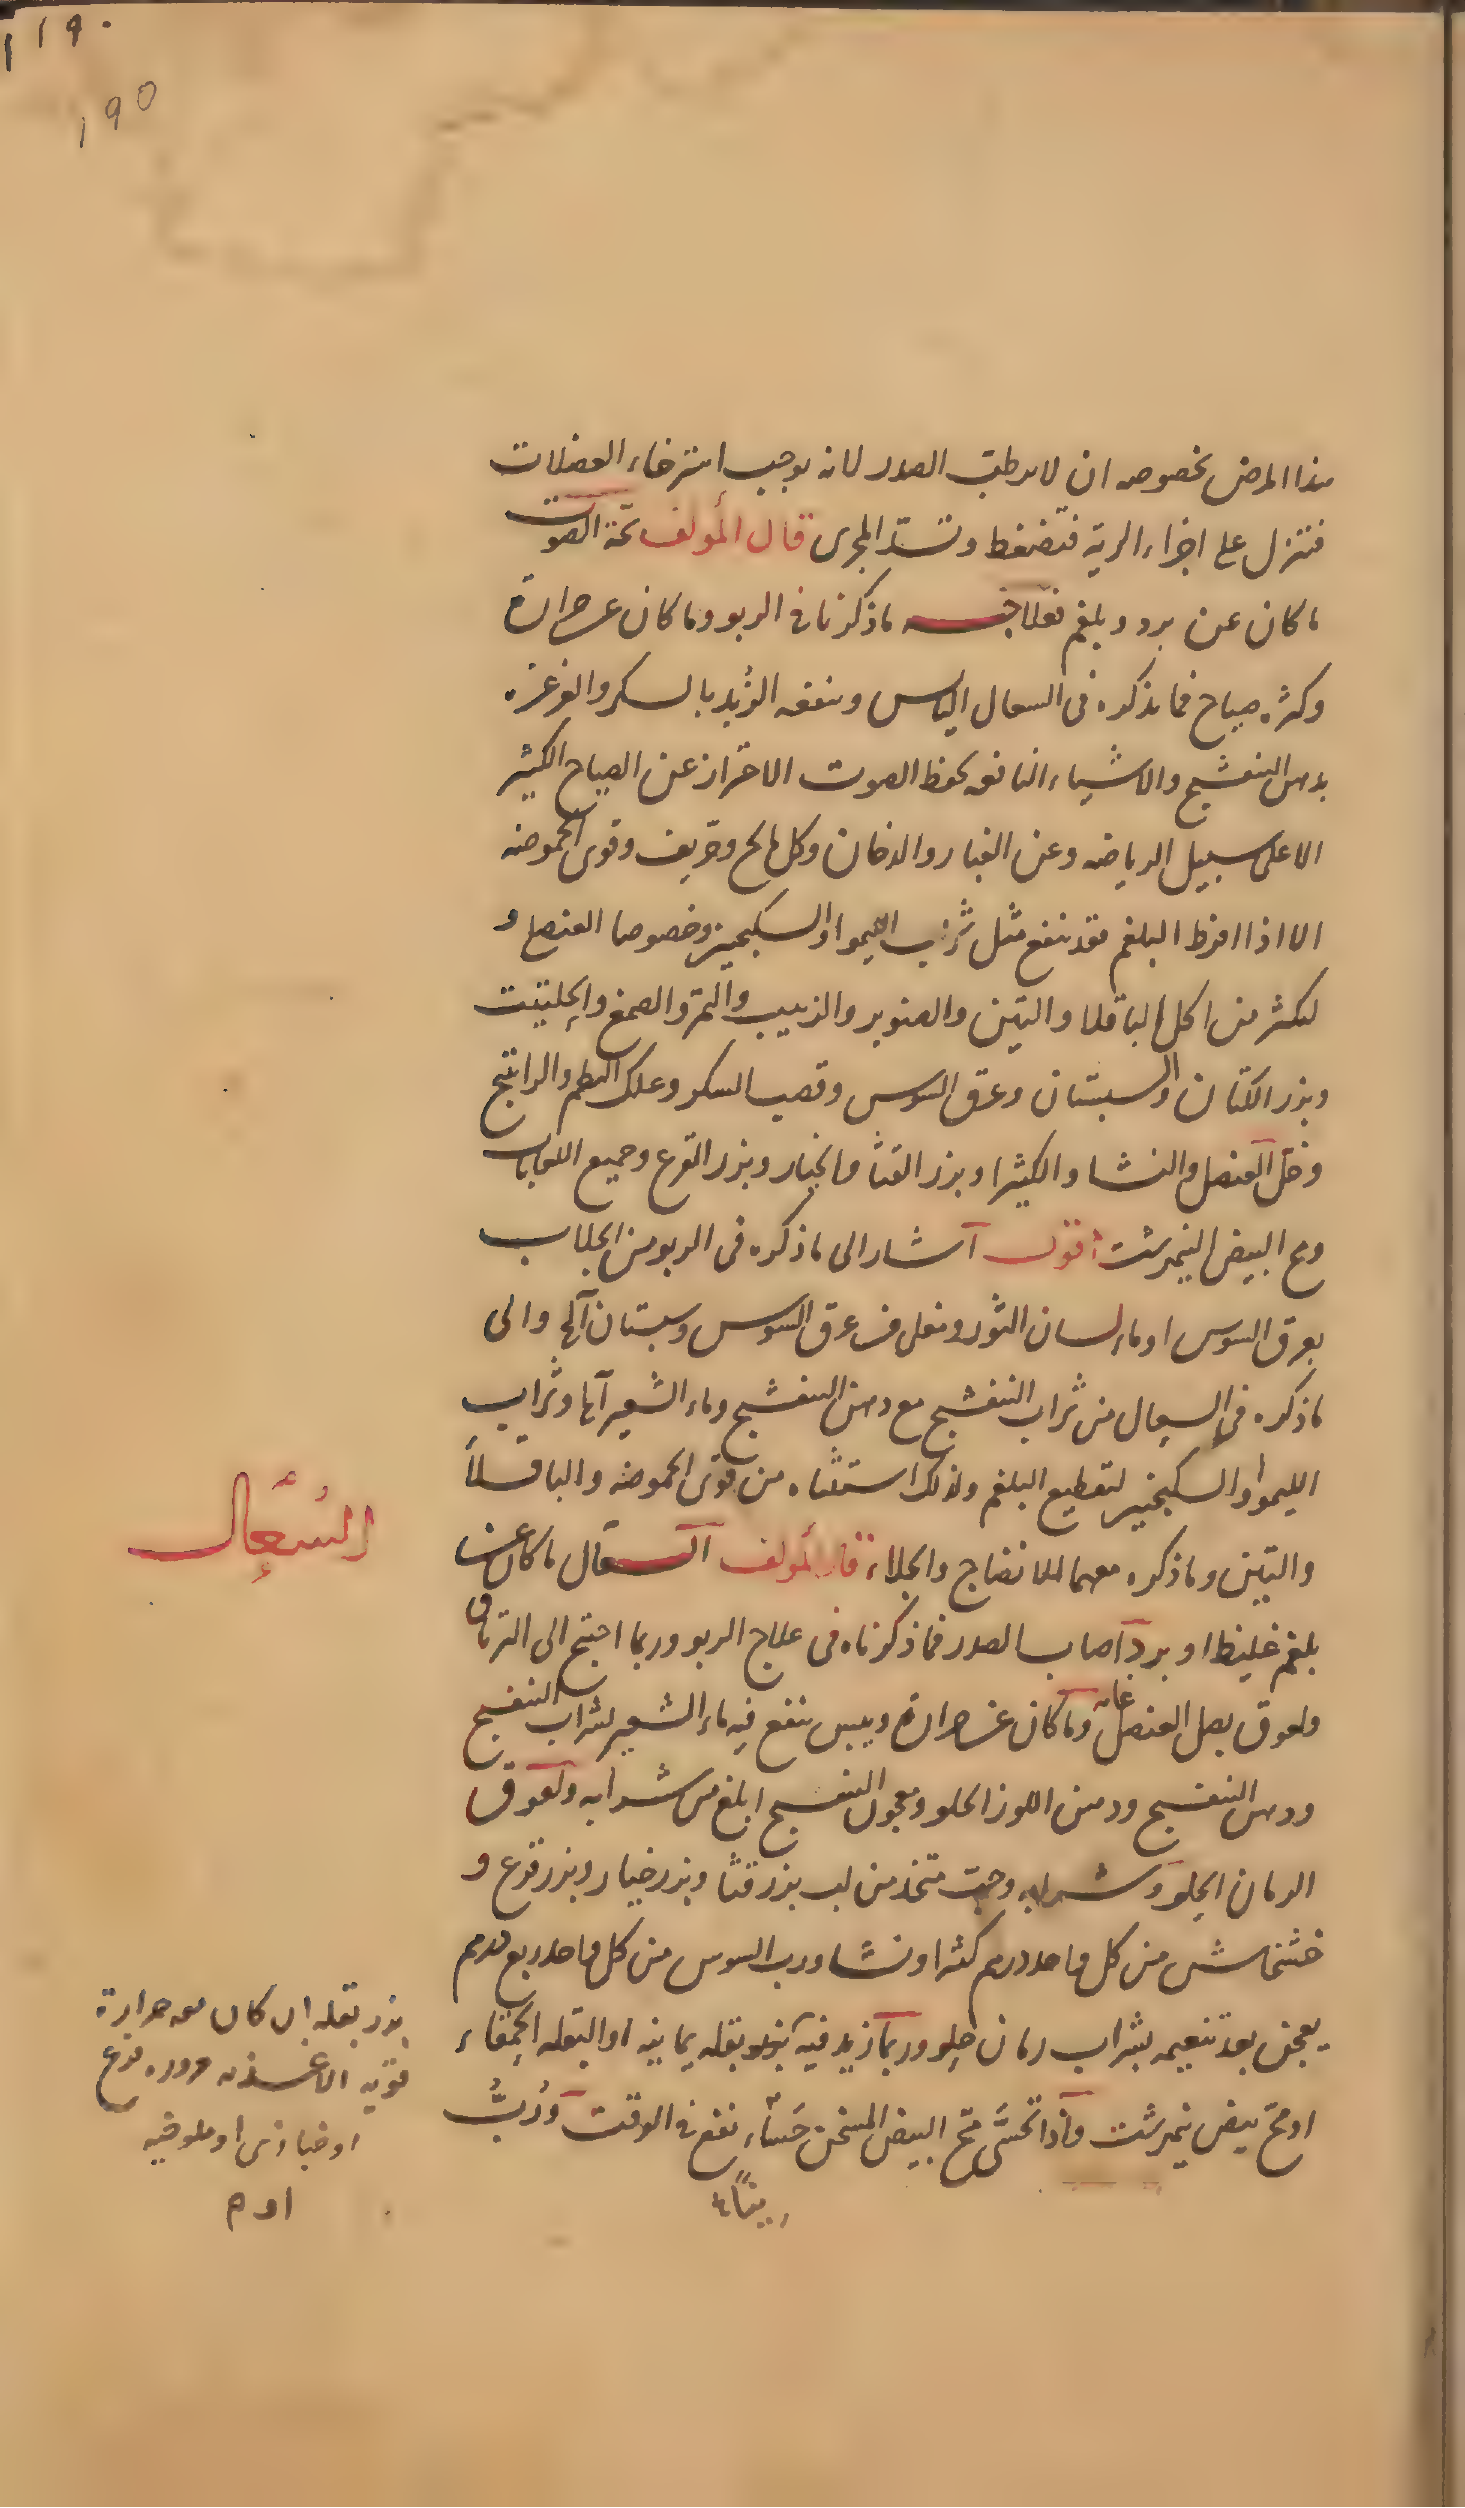 ١١٩٠
١٩٥
هذا المرض بخصوصه ان لا يرطب الصدر لانه يوجب استرخاء العضلات
فتنزل على اجزاء الرية فتضغط وتسد المجرى قال المؤلف بحة الصوت
ما كان عن برد وبلغم فعلاجه ما ذكرنا في الربو وما كان عن حرارة
وكثرة صياح فما يذكره في السعال اليابس وينفعه الزبد بالسكر والغرغرة
بدهن البنفسج والاشياء النافعه لحفظ الصوت الاحتراز عن الصياح الكثير
الا على سبيل الرياضه وعن الغبار والدخان وكل مالح وحريف وقوى الحموضه
الا اذا افرط البلغم فقد ينفع مثل شراب الليموا والسكنجبين وخصوصا العنصل و
ليكثر من اكل الباقلا والتين والصنوبر والزبيب والتمر والصمغ والحلتيت
وبزر الكتان والسبستان وعرق السوس وقصب السكر وعلك البطم والراتينج
وخل العنصل والنشا والكثيرا وبزر القثا والخيار وبزر القرع وجميع اللعابات
ومح البيض النيمرشت اقول اشار الى ما ذكره في الربو من الجلاب
بعرق السوس او ماء لسان الثور ومغلى من عرق السوس وسبستان آلها والى
ما ذكره في السعال من شراب البنفسج مع دهن البنفسج وماء الشعير آها وشراب
الليموا والسكنجبين لتقطيع البلغم ولذلك استثناه من قوى الحموضه والباقلا
والتين وما ذكره معهما للانضاج والجلاء قال المؤلف السعال ما كان عن
بلغم غليظ او برد اصاب الصدر فما ذكرناه في علاج الربو وربما احتيج الى الترياق
ولعوق بصل العنصل غايه وما كان عن حرارة ويبس ينفع فيه ماء الشعير بشراب البنفسج
ودهن البنفسج ودهن اللوز الحلو ومعجون البنفسج ابلغ من شرابه ولعوق
الرمان الحلو وشرابه وحب متخذ من لب بزر قثا وبزر خيار وبزر قرع و
خشخاش من كل واحد درهم كثيرا ونشا ورب السوس من كل واحد ربع درهم
يعجن بعد تنعيمه بشراب رمان حلو وربما زيد فيه بزر بقله يمانيه او البقله الحمقاء
او مح بيض نيمرشت واذا تحسى مح البيض المسخن حساء نفع في الوقت ورب
بينا
السعال
بزر بقله ان كان معه حرارة
قويه الاغذيه مزوره قرع
او خبازى او ملوخيه